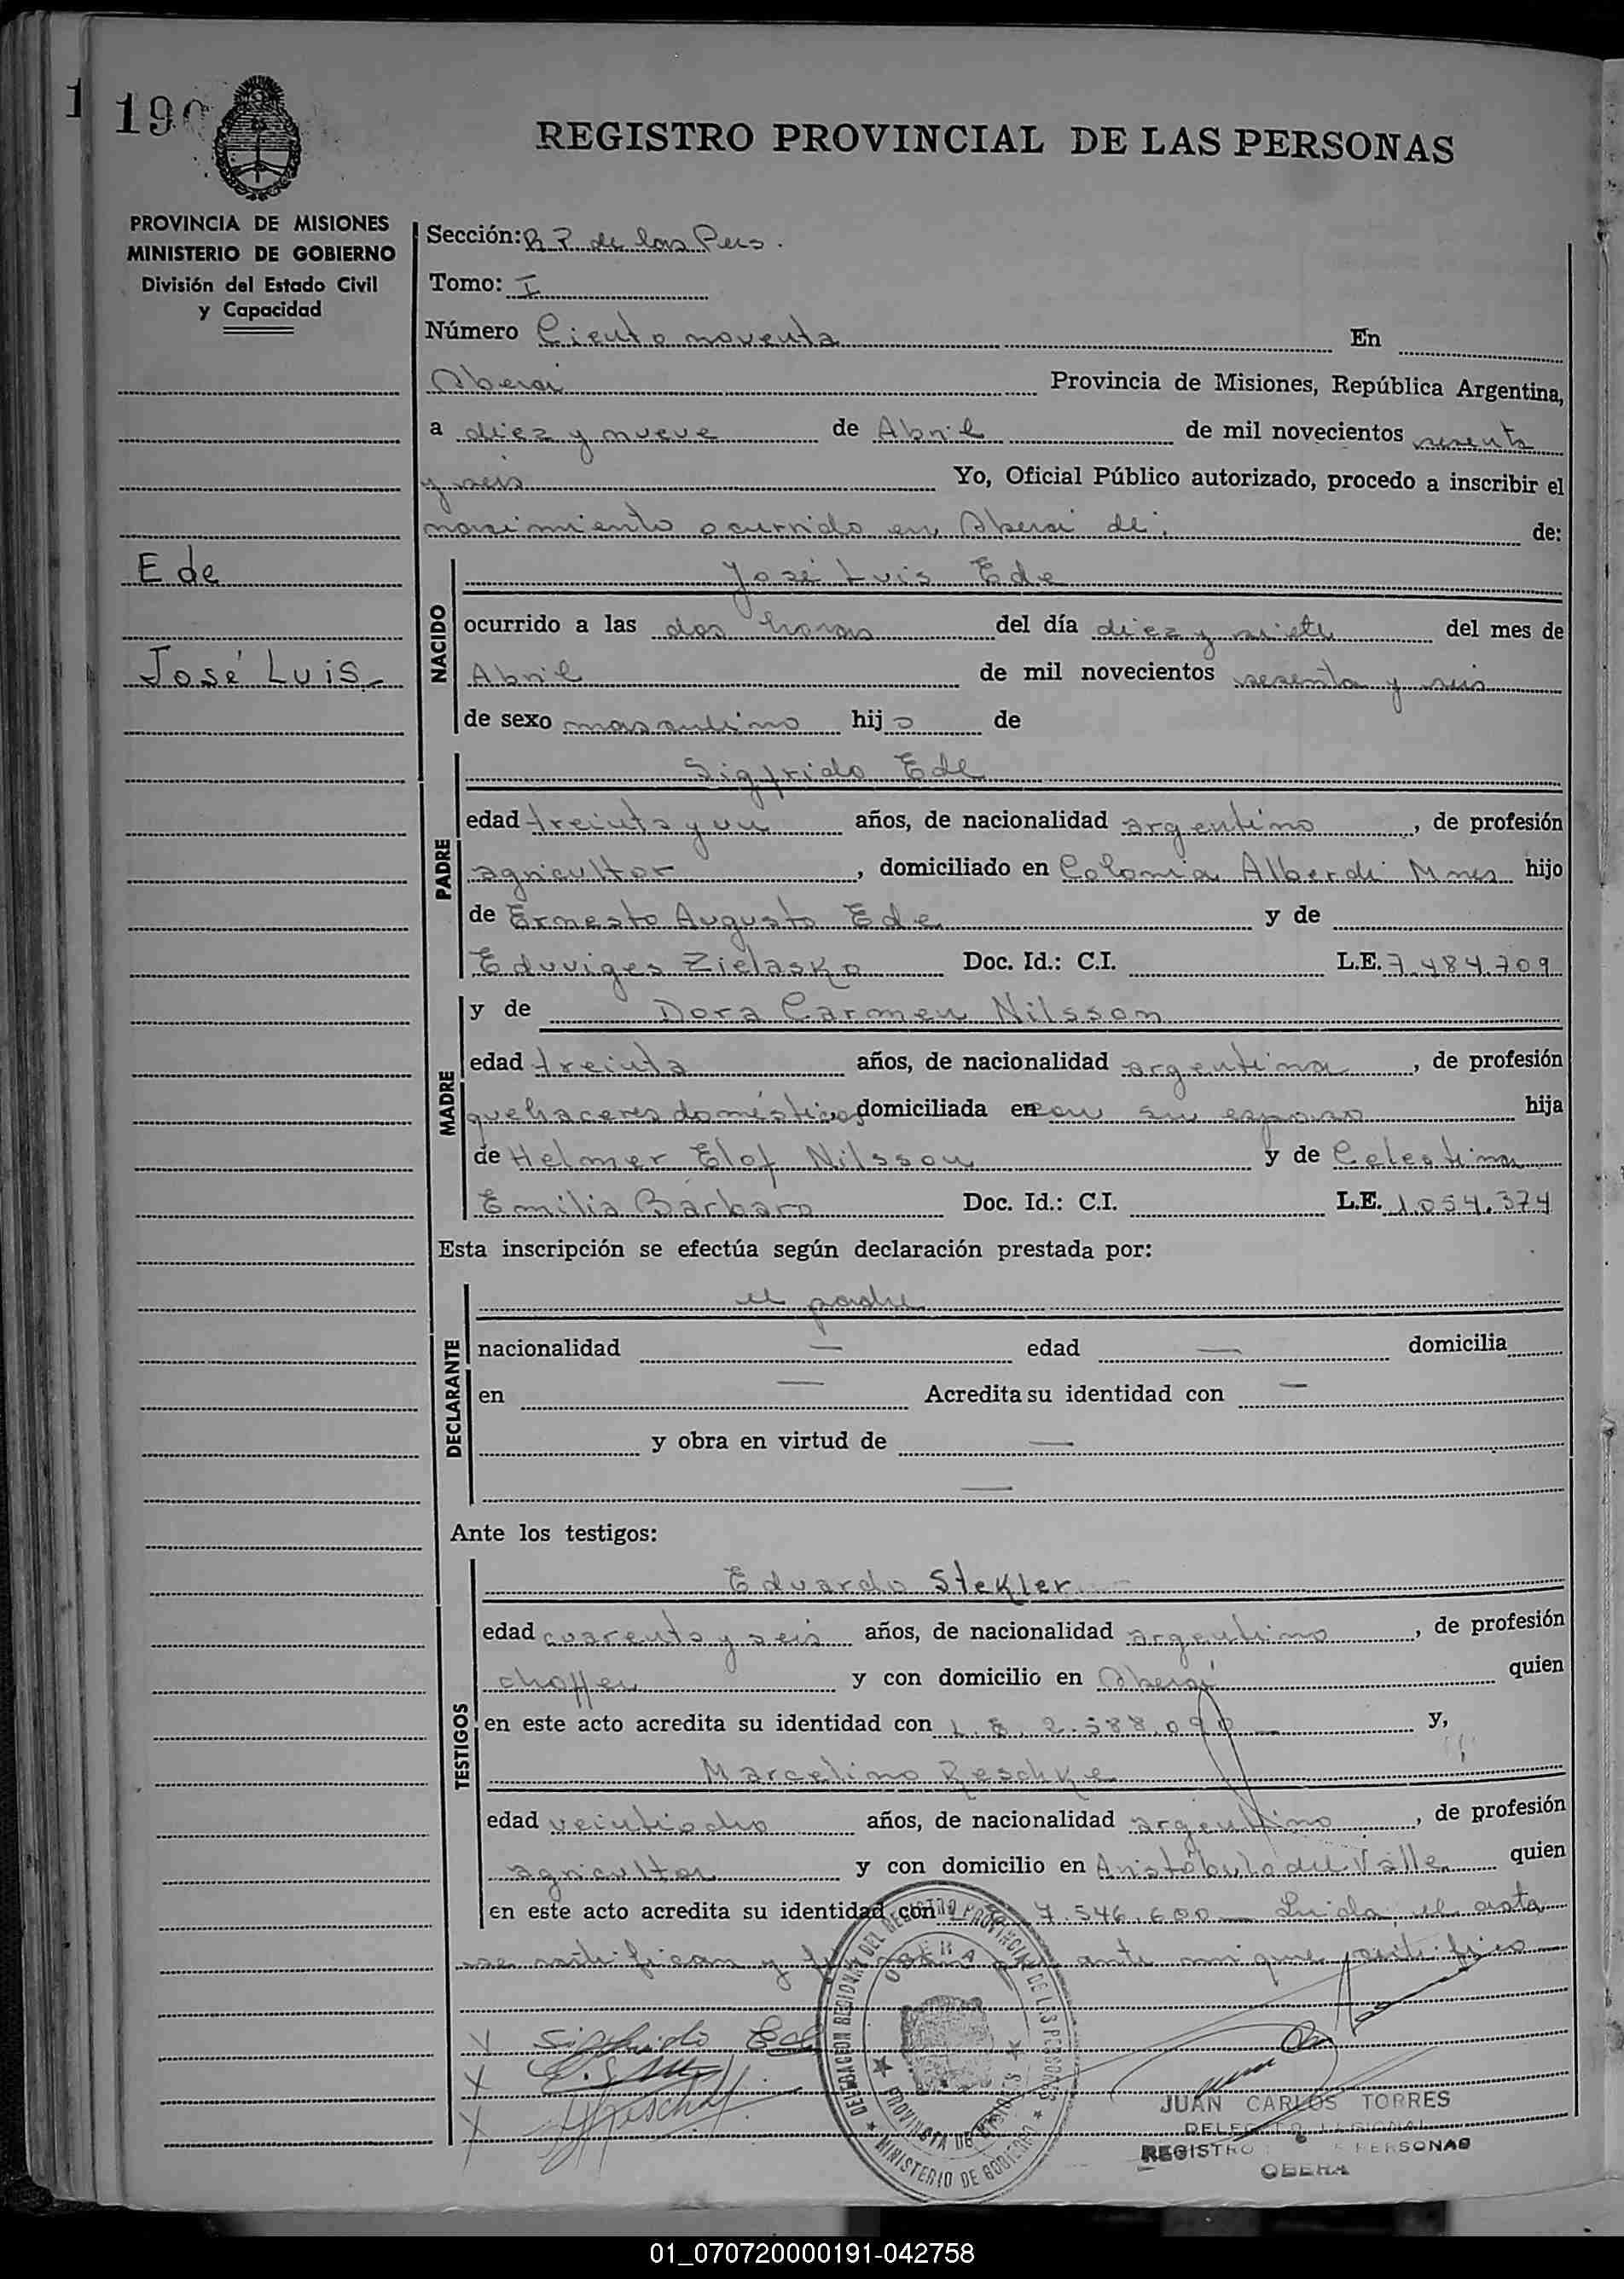 1
190
REGISTRO PROVINCIAL DE LAS PERSONAS
PROVINCIA DE MISIONES
MINISTERIO DE GOBIERNO
División del Estado Civil
y Capacidad
Sección: R P de las Pers.
Tomo: I
Número Ciento noventa En
Oberá Provincia de Misiones, República Argentina,
a diez y nueve de Abril de mil novecientos sesenta
y seis Yo, Oficial Público autorizado, procedo a inscribir el
nacimiento ocurrido en Oberá de: de:
Ede
José Luis
NACIDO
José Luis Ede
ocurrido a las dos horas del día diez y siete del mes de
Abril de mil novecientos sesenta y seis
de sexo masculino hijo de
PADRE
Sigfrido Ede
edad treinta y un años, de nacionalidad argentino, de profesión
agricultor, domiciliado en Colonia Alberdi Mnes hijo
de Ernesto Augusto Ede y de
Eduviges Zielasko Doc. Id.: C.I. L.E. 7.484.709
MADRE
y de Dora Carmen Nilsson
edad treinta años, de nacionalidad argentina, de profesión
quehaceres domésticos domiciliada en con su esposo hija
de Helmer Elof Nilsson y de Celestina
Emilia Bárbaro Doc. Id.: C.I. L.E. 1.054.374
Esta inscripción se efectúa según declaración prestada por:
DECLARANTE
el padre
nacionalidad — edad — domicilia
en — Acredita su identidad con —
y obra en virtud de —
—
Ante los testigos:
TESTIGOS
Eduardo Stekler
edad cuarenta y seis años, de nacionalidad argentino, de profesión
choffer y con domicilio en Oberá quien
en este acto acredita su identidad con L.E. 2.588.090 y,
Marcelino Reschke
edad veintiocho años, de nacionalidad argentino, de profesión
agricultor y con domicilio en Aristóbulo del Valle quien
en este acto acredita su identidad con 7.546.600 — Leída el acta
se ratifican y ante mi que certifico
X Sigfrido Ede
X
X
DELEGACION REGIONAL DEL REGISTRO PROVINCIAL DE LAS PERSONAS
OBERA
PROVINCIA DE MISIONES
MINISTERIO DE GOBIERNO
JUAN CARLOS TORRES
DELEGADO REGIONAL
REGISTRO PERSONAS
OBERA
01_070720000191-042758